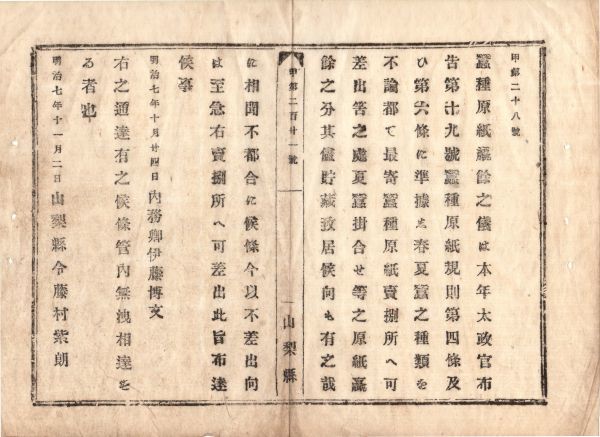 甲第二十八號
蠶種原紙贏餘之儀は本年太政官布
告第十九號蠶種原紙規則第四條及
ひ第六條に準據し春夏蠶之種類を
不論都て最寄蠶種原紙賣捌所へ可
差出筈之處夏蠶掛合せ等之原紙贏
餘之分其儘貯藏致居候向も有之哉
甲第二百廿一號
山梨縣
に相聞不都合に候條今以不差出向
は至急右賣捌所へ可差出此旨布達
候事
明治七年十月廿四日内務卿伊藤博文
右之通達有之候條管内無洩相達す
る者也
明治七年十一月二日山梨縣令藤村紫朗